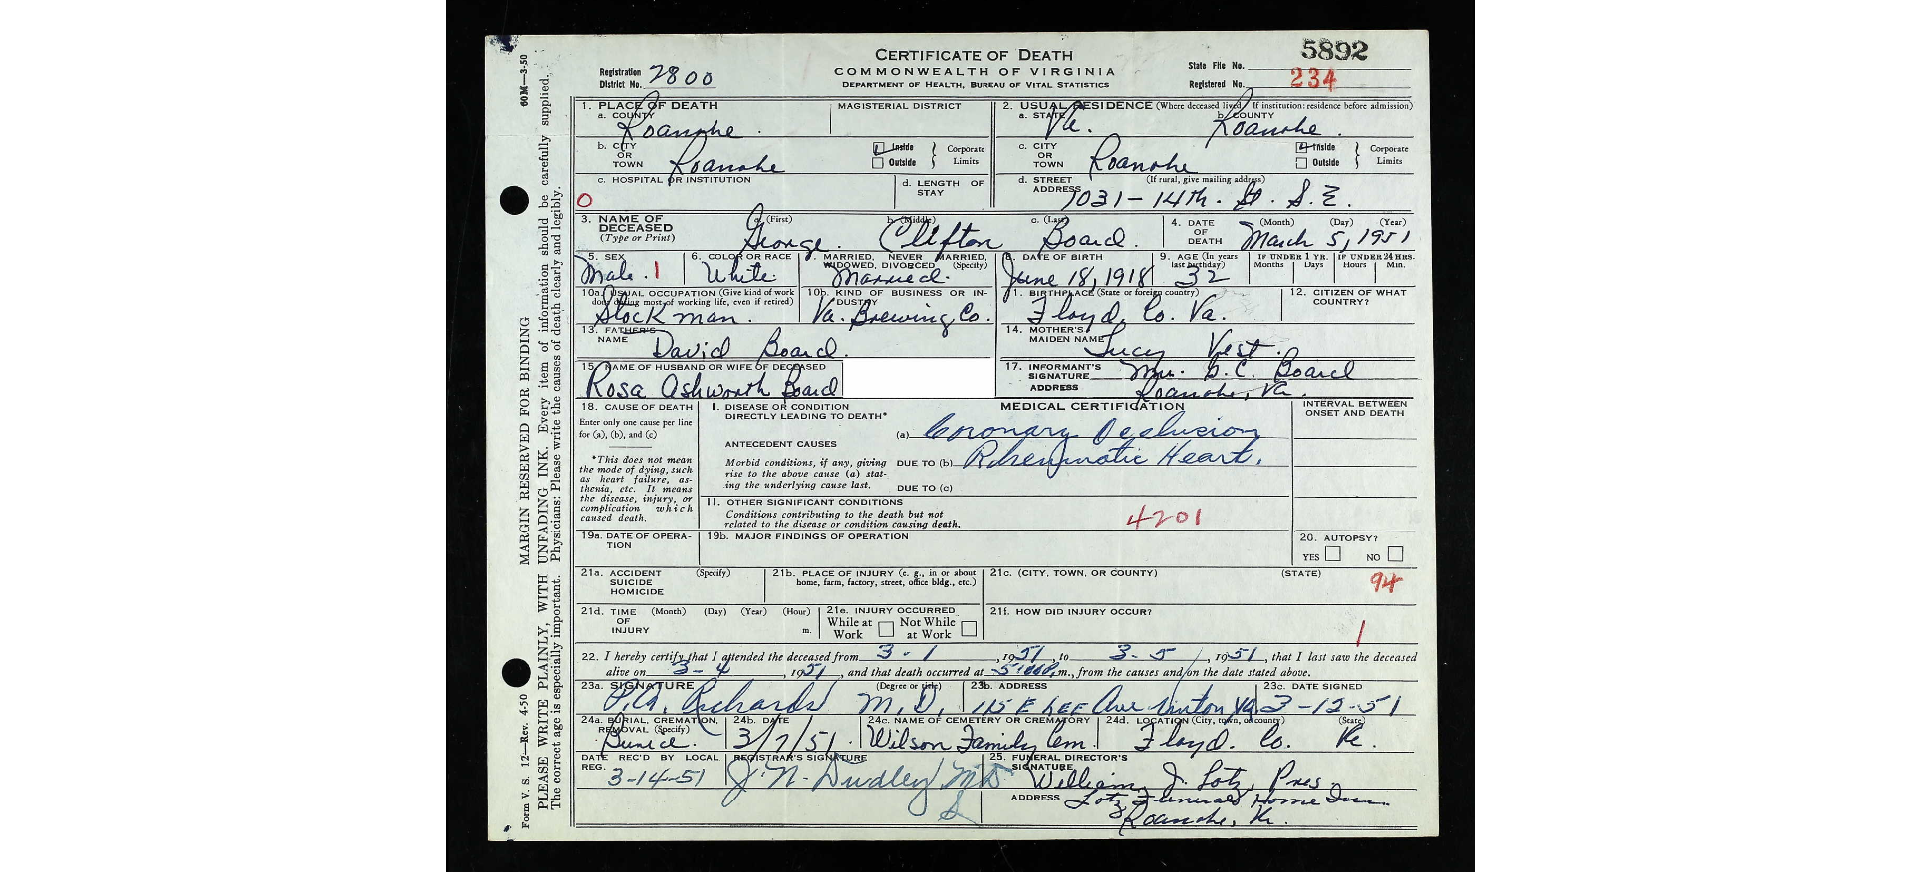 5892
CERTIFICATE OF DEATH
Registration District No. 2800
COMMONWEALTH OF VIRGINIA
State File No.
DEPARTMENT OF HEALTH, BUREAU OF VITAL STATISTICS
Registered No. 234
60M—3-50
MARGIN RESERVED FOR BINDING
PLEASE WRITE PLAINLY, WITH UNFADING INK. Every item of information should be carefully supplied.
The correct age is especially important. Physicians: Please write the causes of death clearly and legibly.
Form V. S. 12—Rev. 4-50
1. PLACE OF DEATH
a. COUNTY Roanoke.
MAGISTERIAL DISTRICT
2. USUAL RESIDENCE (Where deceased lived. If institution: residence before admission)
a. STATE Va.
b. COUNTY Roanoke.
b. CITY OR TOWN Roanoke
Inside
Outside
Corporate Limits
c. CITY OR TOWN Roanoke
Inside
Outside
Corporate Limits
c. HOSPITAL OR INSTITUTION
0
d. LENGTH OF STAY
d. STREET ADDRESS (If rural, give mailing address)
1031-14th. St. S.E.
3. NAME OF DECEASED (Type or Print)
a. (First) George.
b. (Middle) Clifton
c. (Last) Board.
4. DATE OF DEATH (Month) (Day) (Year)
March 5, 1951
5. SEX Male. 1
6. COLOR OR RACE White
7. MARRIED, NEVER MARRIED, WIDOWED, DIVORCED (Specify) Married.
8. DATE OF BIRTH June 18, 1918
9. AGE (In years last birthday) 32
IF UNDER 1 YR. Months Days
IF UNDER 24 HRS. Hours Min.
10a. USUAL OCCUPATION (Give kind of work done during most of working life, even if retired)
Stockman.
10b. KIND OF BUSINESS OR INDUSTRY
Va. Brewing Co.
11. BIRTHPLACE (State or foreign country)
Floyd. Co. Va.
12. CITIZEN OF WHAT COUNTRY?
13. FATHER'S NAME David Board.
14. MOTHER'S MAIDEN NAME Lucy Vest.
15. NAME OF HUSBAND OR WIFE OF DECEASED
Rosa Ashworth Board
17. INFORMANT'S SIGNATURE Mrs. G.C. Board
ADDRESS Roanoke, Va.
18. CAUSE OF DEATH
Enter only one cause per line for (a), (b), and (c)
*This does not mean the mode of dying, such as heart failure, asthenia, etc. It means the disease, injury, or complication which caused death.
MEDICAL CERTIFICATION
INTERVAL BETWEEN ONSET AND DEATH
I. DISEASE OR CONDITION DIRECTLY LEADING TO DEATH*
(a) Coronary Occlusion
ANTECEDENT CAUSES
Morbid conditions, if any, giving rise to the above cause (a) stating the underlying cause last.
DUE TO (b) Rheumatic Heart.
DUE TO (c)
II. OTHER SIGNIFICANT CONDITIONS
Conditions contributing to the death but not related to the disease or condition causing death.
4201
19a. DATE OF OPERATION
19b. MAJOR FINDINGS OF OPERATION
20. AUTOPSY?
YES NO
21a. ACCIDENT SUICIDE HOMICIDE (Specify)
21b. PLACE OF INJURY (e. g., in or about home, farm, factory, street, office bldg., etc.)
21c. (CITY, TOWN, OR COUNTY) (STATE)
94
21d. TIME OF INJURY (Month) (Day) (Year) (Hour) m.
21e. INJURY OCCURRED
While at Work
Not While at Work
21f. HOW DID INJURY OCCUR?
1
22. I hereby certify that I attended the deceased from 3-1, 1951, to 3-5, 1951, that I last saw the deceased
alive on 3-4, 1951, and that death occurred at m., from the causes and on the date stated above.
23a. SIGNATURE (Degree or title)
Richards M.D.
23b. ADDRESS
115 E Lee Ave Vinton Va.
23c. DATE SIGNED
3-12-51
24a. BURIAL, CREMATION, REMOVAL (Specify)
Burial.
24b. DATE
3/7/51.
24c. NAME OF CEMETERY OR CREMATORY
Wilson Family Cem.
24d. LOCATION (City, town, or county) (State)
Floyd. Co. Va.
DATE REC'D BY LOCAL REG.
3-14-51
REGISTRAR'S SIGNATURE
J. N. Dudley MD
25. FUNERAL DIRECTOR'S SIGNATURE
William J. Lotz, Pres
ADDRESS Lotz Funeral Home Inc.
Roanoke, Va.